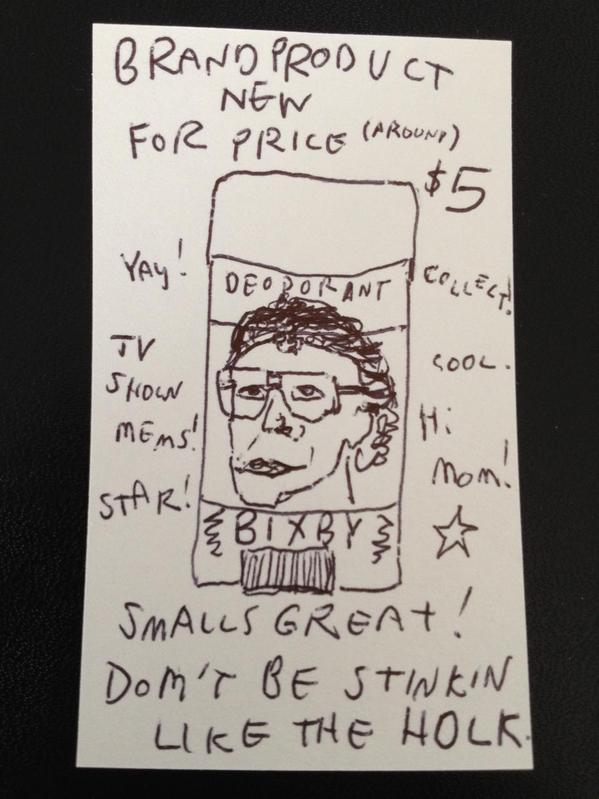 BRANDPRODUCT
NEW
FOR PRICE (AROUND)
$5
YAY!
DEODORANT
COLLECT!
TV
SHOW
MEMS!
COOL.
Hi
MOM!
STAR!
BIXBY
SMALLS GREAT!
DOM'T BE STINKIN
LIKE THE HOLK.